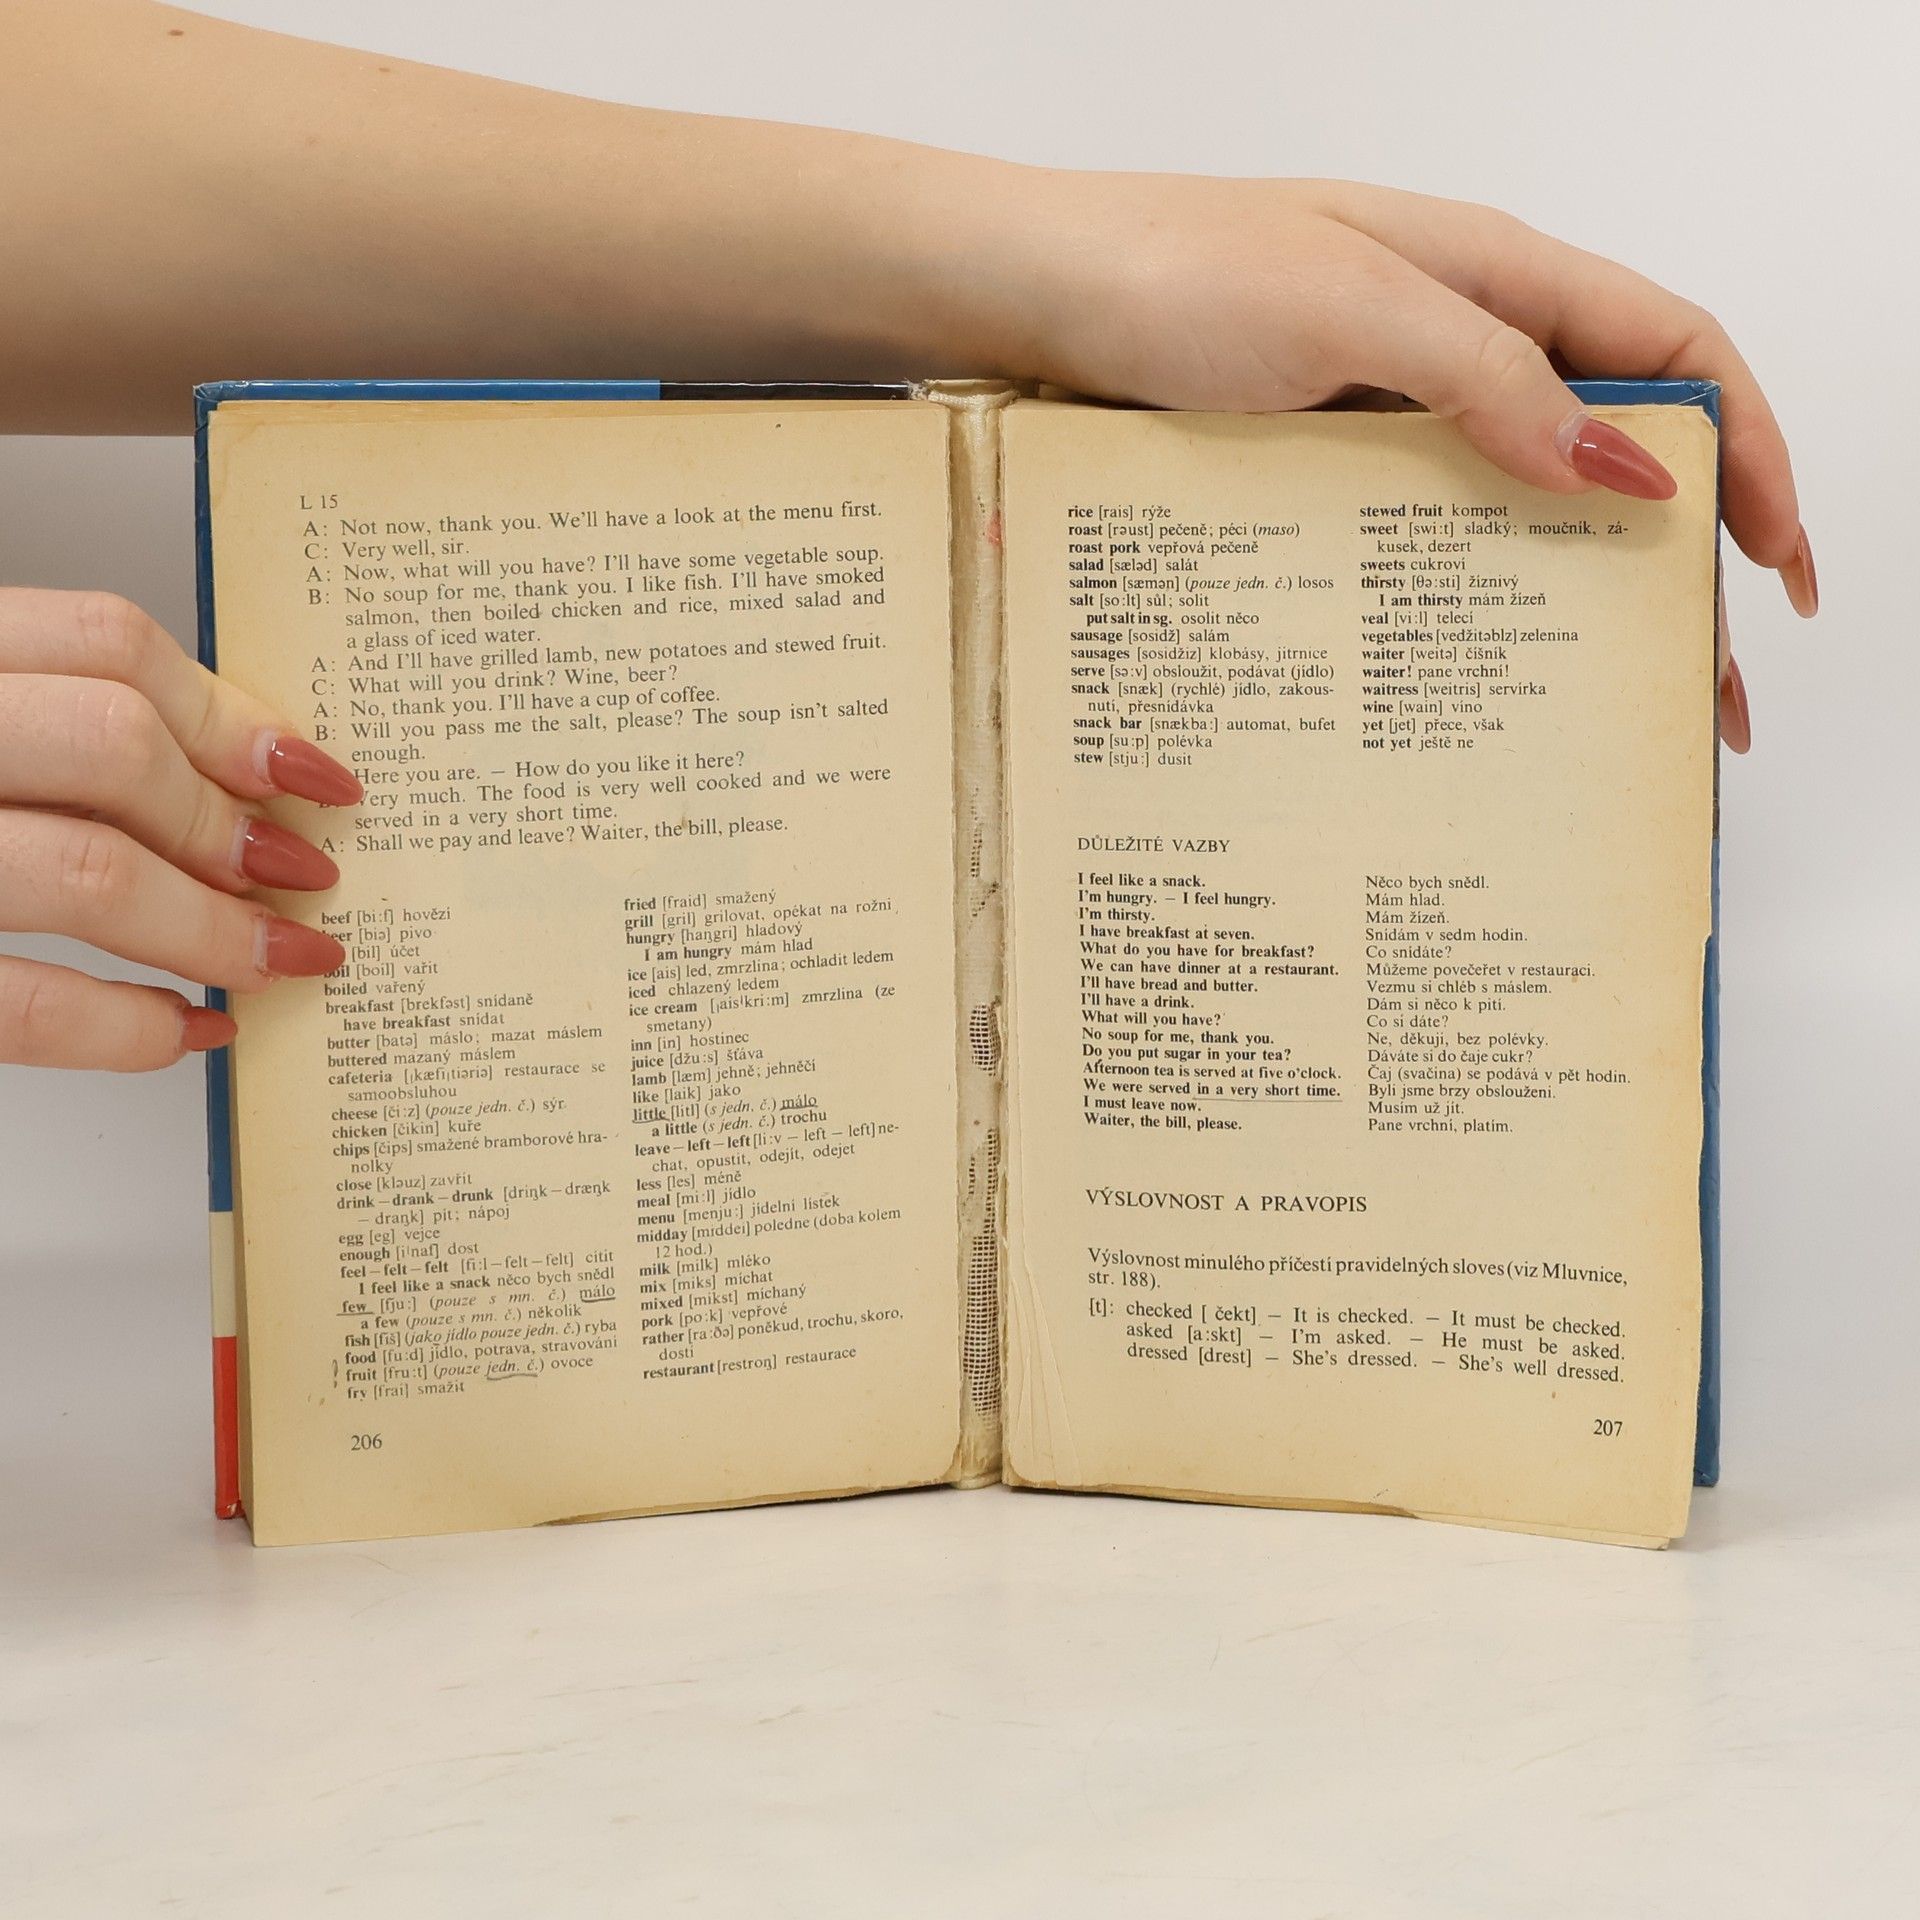 L 15
A: Not now, thank you. We'll have a look at the menu first.
C: Very well, sir.
A: Now, what will you have? I'll have some vegetable soup.
B: No soup for me, thank you. I like fish. I'll have smoked
salmon, then boiled chicken and rice, mixed salad and
a glass of iced water.
A: And I'll have grilled lamb, new potatoes and stewed fruit.
C: What will you drink? Wine, beer?
A: No, thank you. I'll have a cup of coffee.
B: Will you pass me the salt, please? The soup isn't salted
enough.
Here you are. — How do you like it here?
Very much. The food is very well cooked and we were
served in a very short time.
A: Shall we pay and leave? Waiter, the bill, please.
beef [bi:f] hovězí
beer [biə] pivo
[bil] účet
boil [boil] vařit
boiled vařený
breakfast [brekfəst] snídaně
have breakfast snídat
butter [batə] máslo; mazat máslem
buttered mazaný máslem
cafeteria [ˌkæfiˈtiəriə] restaurace se
samoobsluhou
cheese [či:z] (pouze jedn. č.) sýr
chicken [čikin] kuře
chips [čips] smažené bramborové hra-
nolky
close [kləuz] zavřít
drink — drank — drunk [driŋk — dræŋk
— draŋk] pít; nápoj
egg [eg] vejce
enough [iˈnaf] dost
feel — felt — felt [fi:l — felt — felt] cítit
I feel like a snack něco bych snědl
few [fju:] (pouze s mn. č.) málo
a few (pouze s mn. č.) několik
fish [fiš] (jako jídlo pouze jedn. č.) ryba
food [fu:d] jídlo, potrava, stravování
fruit [fru:t] (pouze jedn. č.) ovoce
fry [frai] smažit
fried [fraid] smažený
grill [gril] grilovat, opékat na rožni
hungry [haŋgri] hladový
I am hungry mám hlad
ice [ais] led, zmrzlina; ochladit ledem
iced chlazený ledem
ice cream [ˌaisˈkri:m] zmrzlina (ze
smetany)
inn [in] hostinec
juice [džu:s] šťáva
lamb [læm] jehně; jehněčí
like [laik] jako
little [litl] (s jedn. č.) málo
a little (s jedn. č.) trochu
leave — left — left [li:v — left — left] ne-
chat, opustit, odejít, odejet
less [les] méně
meal [mi:l] jídlo
menu [menju:] jídelní lístek
midday [middei] poledne (doba kolem
12 hod.)
milk [milk] mléko
mix [miks] míchat
mixed [mikst] míchaný
pork [po:k] vepřové
rather [ra:ðə] poněkud, trochu, skoro,
dosti
restaurant [restroŋ] restaurace
206
rice [rais] rýže
roast [rəust] pečeně; péci (maso)
roast pork vepřová pečeně
salad [sæləd] salát
salmon [sæmən] (pouze jedn. č.) losos
salt [so:lt] sůl; solit
put salt in sg. osolit něco
sausage [sosidž] salám
sausages [sosidžiz] klobásy, jitrnice
serve [sə:v] obsloužit, podávat (jídlo)
snack [snæk] (rychlé) jídlo, zakous-
nutí, přesnídávka
snack bar [snækba:] automat, bufet
soup [su:p] polévka
stew [stju:] dusit
stewed fruit kompot
sweet [swi:t] sladký; moučník, zá-
kusek, dezert
sweets cukroví
thirsty [θə:sti] žíznivý
I am thirsty mám žízeň
veal [vi:l] telecí
vegetables [vedžitəblz] zelenina
waiter [weitə] číšník
waiter! pane vrchní!
waitress [weitris] servírka
wine [wain] víno
yet [jet] přece, však
not yet ještě ne
DŮLEŽITÉ VAZBY
I feel like a snack. Něco bych snědl.
I'm hungry. — I feel hungry. Mám hlad.
I'm thirsty. Mám žízeň.
I have breakfast at seven. Snídám v sedm hodin.
What do you have for breakfast? Co snídáte?
We can have dinner at a restaurant. Můžeme povečeřet v restauraci.
I'll have bread and butter. Vezmu si chléb s máslem.
I'll have a drink. Dám si něco k pití.
What will you have? Co si dáte?
No soup for me, thank you. Ne, děkuji, bez polévky.
Do you put sugar in your tea? Dáváte si do čaje cukr?
Afternoon tea is served at five o'clock. Čaj (svačina) se podává v pět hodin.
We were served in a very short time. Byli jsme brzy obslouženi.
I must leave now. Musím už jít.
Waiter, the bill, please. Pane vrchní, platím.
VÝSLOVNOST A PRAVOPIS
Výslovnost minulého příčestí pravidelných sloves (viz Mluvnice,
str. 188).
[t]: checked [ čekt] — It is checked. — It must be checked.
asked [a:skt] — I'm asked. — He must be asked.
dressed [drest] — She's dressed. — She's well dressed.
207